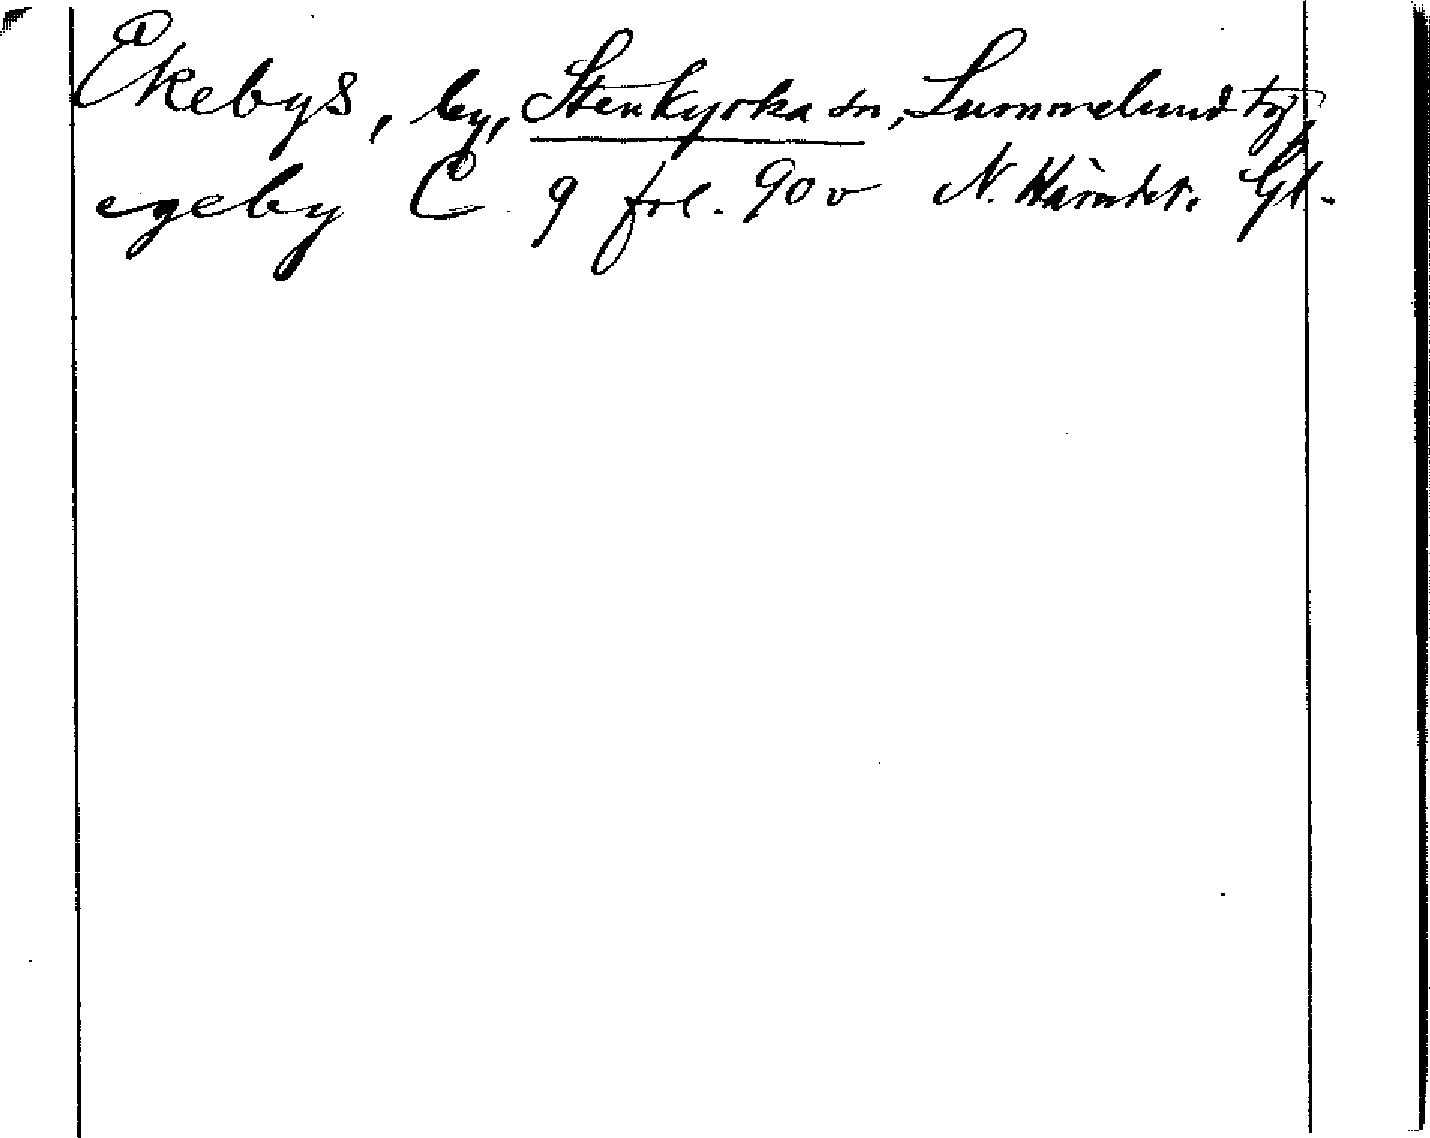 Ekebys, by, Stenkyrka sn, Lummelund tg,
egeby C 9 fol. 90 v N. Häradet. Gtl.